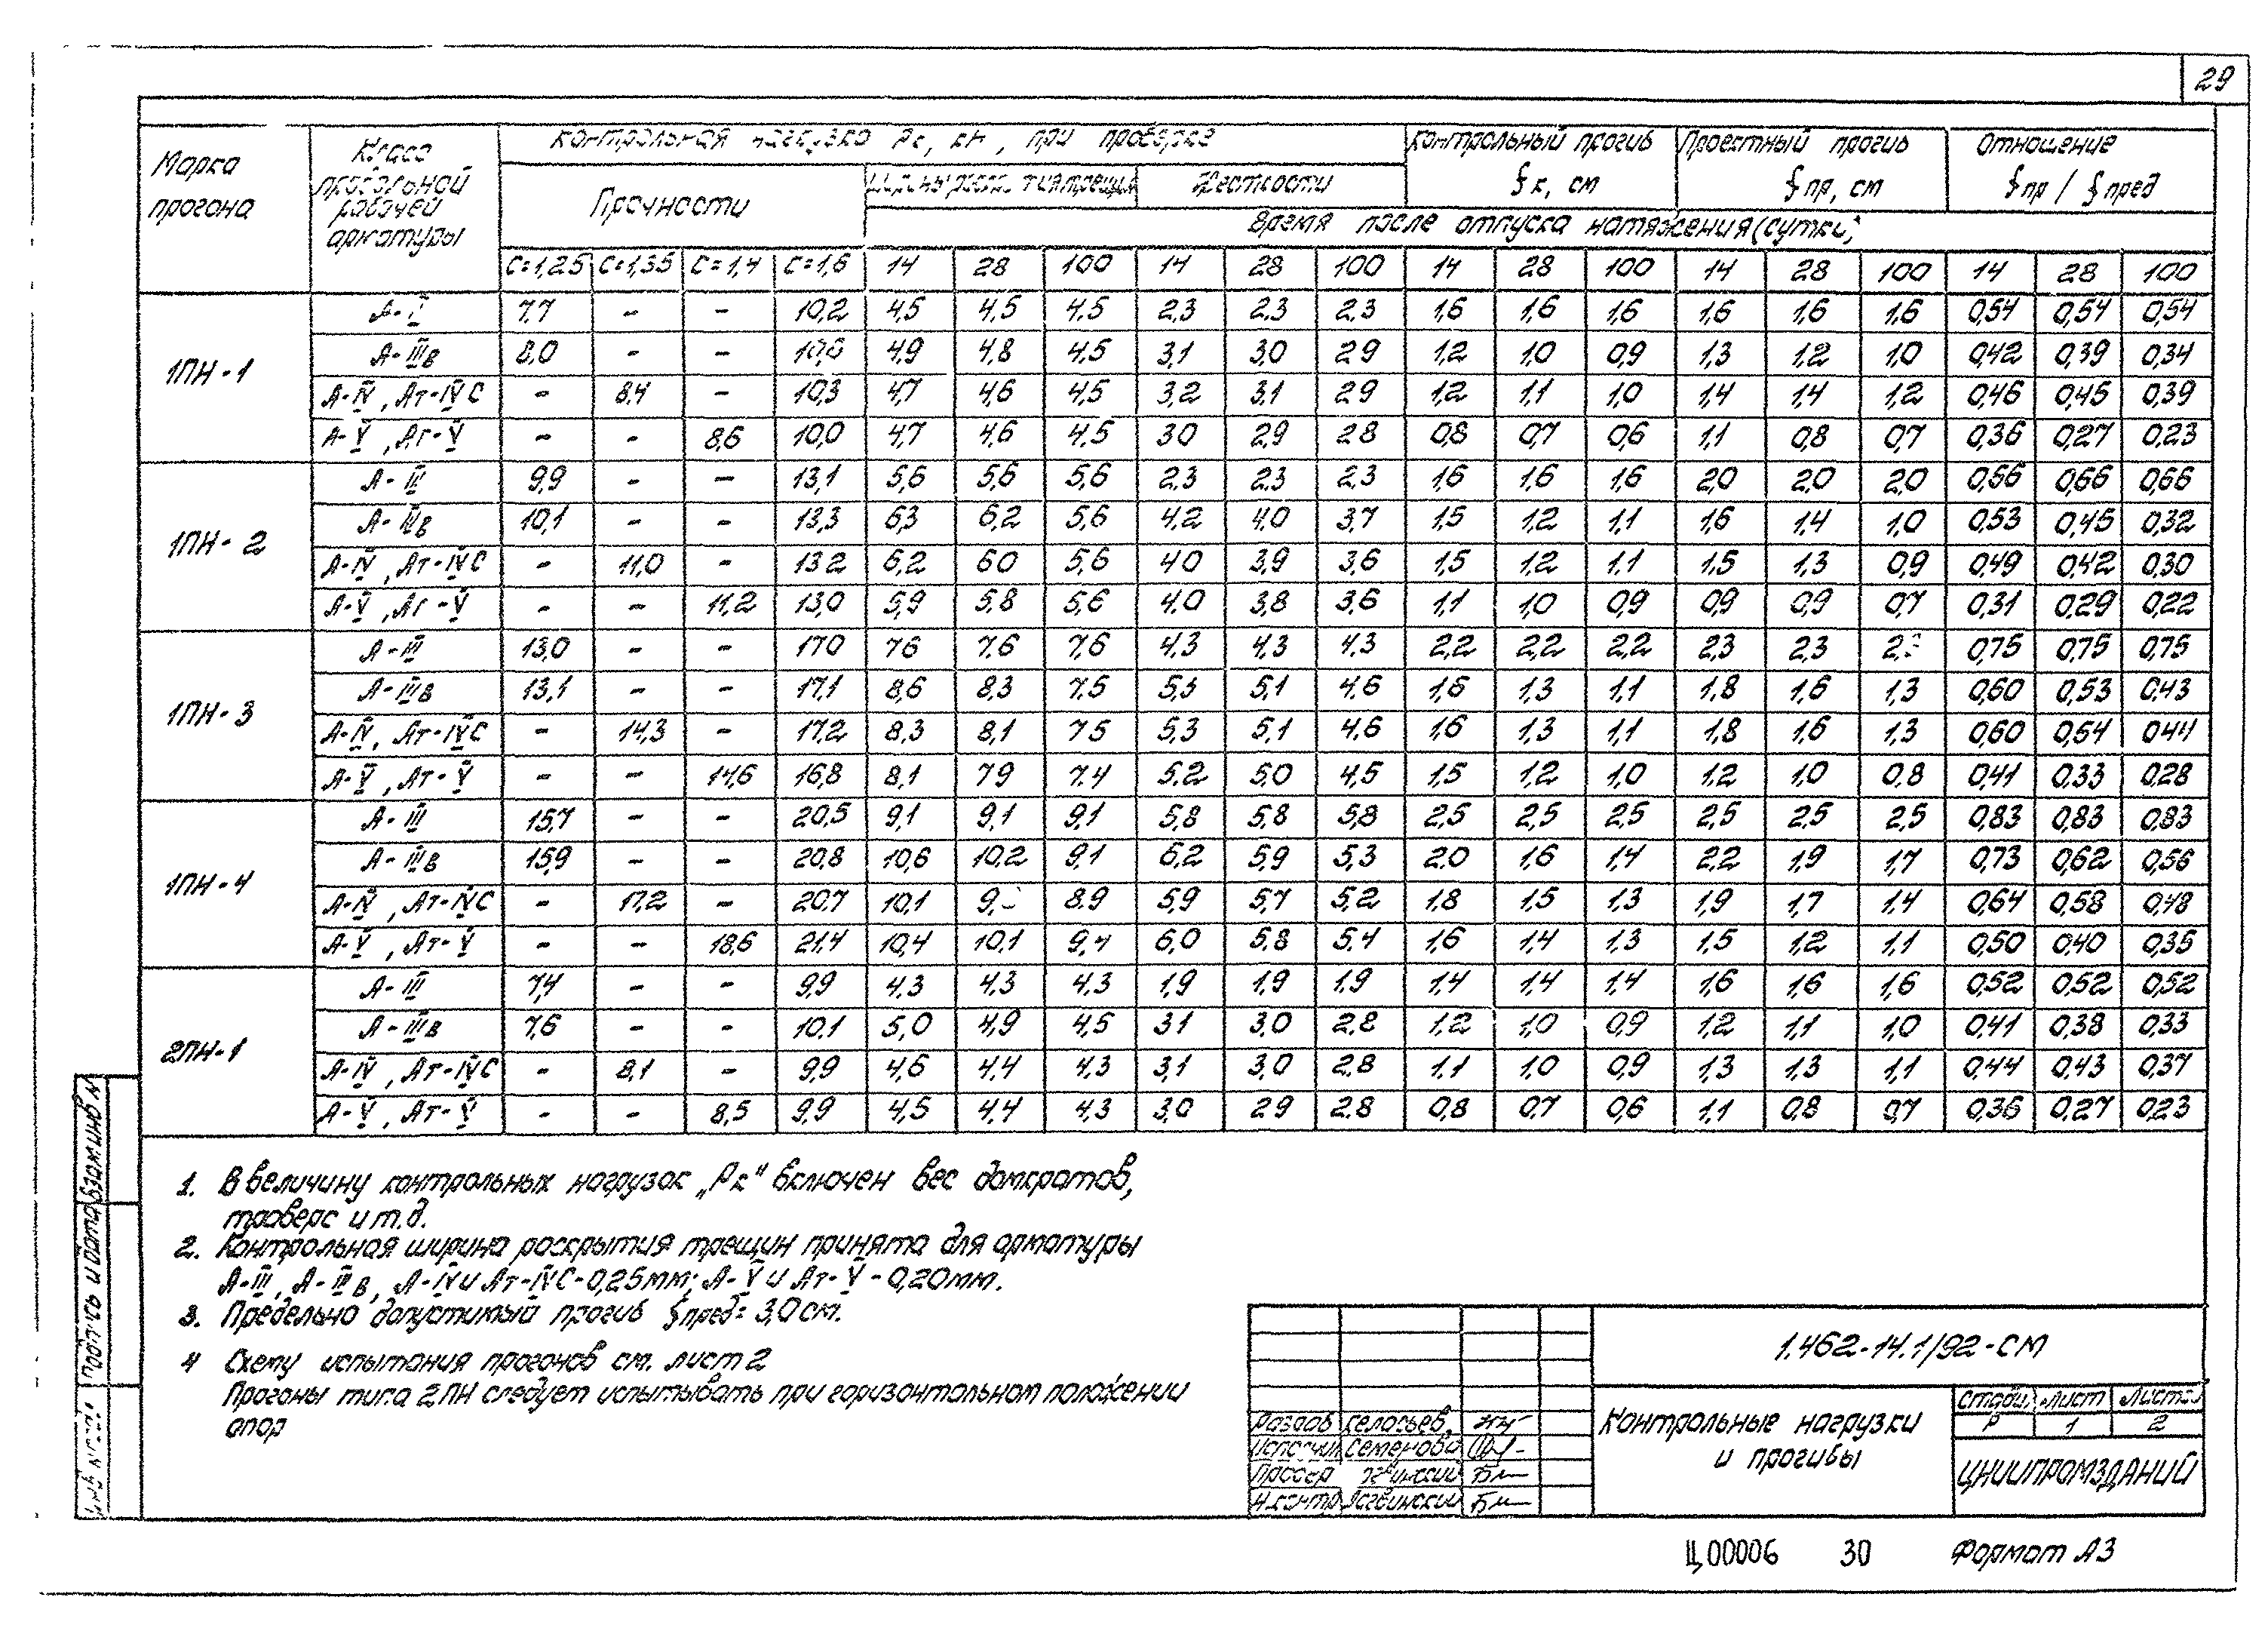 29
Марка прогона
Класс продольной рабочей арматуры
Контрольная нагрузка Рк, кН, при проверке
Контрольный прогиб fк, см
Проектный прогиб fпр, см
Отношение fпр / fпред
Прочности
Ширины раскрытия трещин
Жесткости
Время после отпуска натяжения (сутки)
С=1,25 С=1,35 С=1,4 С=1,6 14 28 100 14 28 100 14 28 100 14 28 100 14 28 100
1ПН-1
7,7 - - 10,2 4,5 4,5 4,5 2,3 2,3 2,3 1,6 1,6 1,6 1,6 1,6 1,6 0,54 0,54 0,54
А-IIIв 8,0 - - 4,9 4,8 4,5 3,1 3,0 2,9 1,2 1,0 0,9 1,3 1,2 1,0 0,42 0,39 0,34
А-IV, Ат-IVС - 8,4 - 10,3 4,7 4,6 4,5 3,2 3,1 2,9 1,2 1,1 1,0 1,4 1,4 1,2 0,46 0,45 0,39
А-V, Ат-V - - 8,6 10,0 4,7 4,6 4,5 3,0 2,9 2,8 0,8 0,7 0,6 1,1 0,8 0,7 0,36 0,27 0,23
1ПН-2
А-III 9,9 - - 13,1 5,6 5,6 5,6 2,3 2,3 2,3 1,6 1,6 1,6 2,0 2,0 2,0 0,66 0,66 0,66
А-IIIв 10,1 - - 13,3 6,3 6,2 5,6 4,2 4,0 3,7 1,5 1,2 1,1 1,6 1,4 1,0 0,53 0,45 0,32
А-IV, Ат-IVС - 11,0 - 13,2 6,2 6,0 5,6 4,0 3,9 3,6 1,5 1,2 1,1 1,5 1,3 0,9 0,49 0,42 0,30
А-V, Ат-V - - 11,2 13,0 5,9 5,8 5,6 4,0 3,8 3,6 1,1 1,0 0,9 0,9 0,9 0,7 0,31 0,29 0,22
1ПН-3
А-III 13,0 - - 17,0 7,6 7,6 7,6 4,3 4,3 4,3 2,2 2,2 2,2 2,3 2,3 2,3 0,75 0,75 0,75
А-IIIв 13,1 - - 17,1 8,6 8,3 7,5 5,3 5,1 4,6 1,6 1,3 1,1 1,8 1,6 1,3 0,60 0,53 0,43
А-IV, Ат-IVС - 14,3 - 17,2 8,3 8,1 7,5 5,3 5,1 4,6 1,6 1,3 1,1 1,8 1,6 1,3 0,60 0,54 0,44
А-V, Ат-V - - 14,6 16,8 8,1 7,9 7,4 5,2 5,0 4,5 1,5 1,2 1,0 1,2 1,0 0,8 0,41 0,33 0,28
1ПН-4
А-III 15,7 - - 20,5 9,1 9,1 9,1 5,8 5,8 5,8 2,5 2,5 2,5 2,5 2,5 2,5 0,83 0,83 0,83
А-IIIв 15,9 - - 20,8 10,6 10,2 9,1 6,2 5,9 5,3 2,0 1,6 1,4 2,2 1,9 1,7 0,73 0,62 0,56
А-IV, Ат-IVС - 17,2 - 20,7 10,1 8,9 5,9 5,7 5,2 1,8 1,5 1,3 1,9 1,7 1,4 0,64 0,58 0,48
А-V, Ат-V - - 18,6 21,4 10,4 10,1 6,0 5,8 5,4 1,6 1,4 1,3 1,5 1,2 1,1 0,50 0,40 0,35
2ПН-1
А-III 7,4 - - 9,9 4,3 4,3 4,3 1,9 1,9 1,9 1,4 1,4 1,4 1,6 1,6 1,6 0,52 0,52 0,52
А-IIIв 7,6 - - 10,1 5,0 4,9 4,5 3,1 3,0 2,8 1,2 1,0 0,9 1,2 1,1 1,0 0,41 0,38 0,33
А-IV, Ат-IVС - 8,1 - 9,9 4,6 4,4 4,3 3,1 3,0 2,8 1,1 1,0 0,9 1,3 1,3 1,1 0,44 0,43 0,37
А-V, Ат-V - - 8,5 9,9 4,5 4,4 4,3 3,0 2,9 2,8 0,8 0,7 0,6 1,1 0,8 0,7 0,36 0,27 0,23
1. В величину контрольных нагрузок „Рк" включен вес домкратов,
траверс и т.д.
2. Контрольная ширина раскрытия трещин принята для арматуры
А-III, А-IIIв, А-IV и Ат-IVС-0,25мм; А-V и Ат-V-0,20мм.
3. Предельно допустимый прогиб fпред= 3,0 см.
4 Схему испытания прогонов см. лист 2
Прогоны типа 2ПН следует испытывать при горизонтальном положении
опор
1.462-14.1/92-СМ
Разраб
Исполнил Семенова
Н.контр Логвинский
Контрольные нагрузки
и прогибы
Стадия Лист Листов
Р 1 2
ЦНИИПРОМЗДАНИЙ
Подпись и дата
Ц00006 30 Формат А3